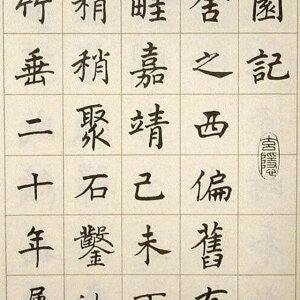 園記
舍之西偏舊有
畦嘉靖己未下
稍稍聚石鑿
竹垂二十年屢